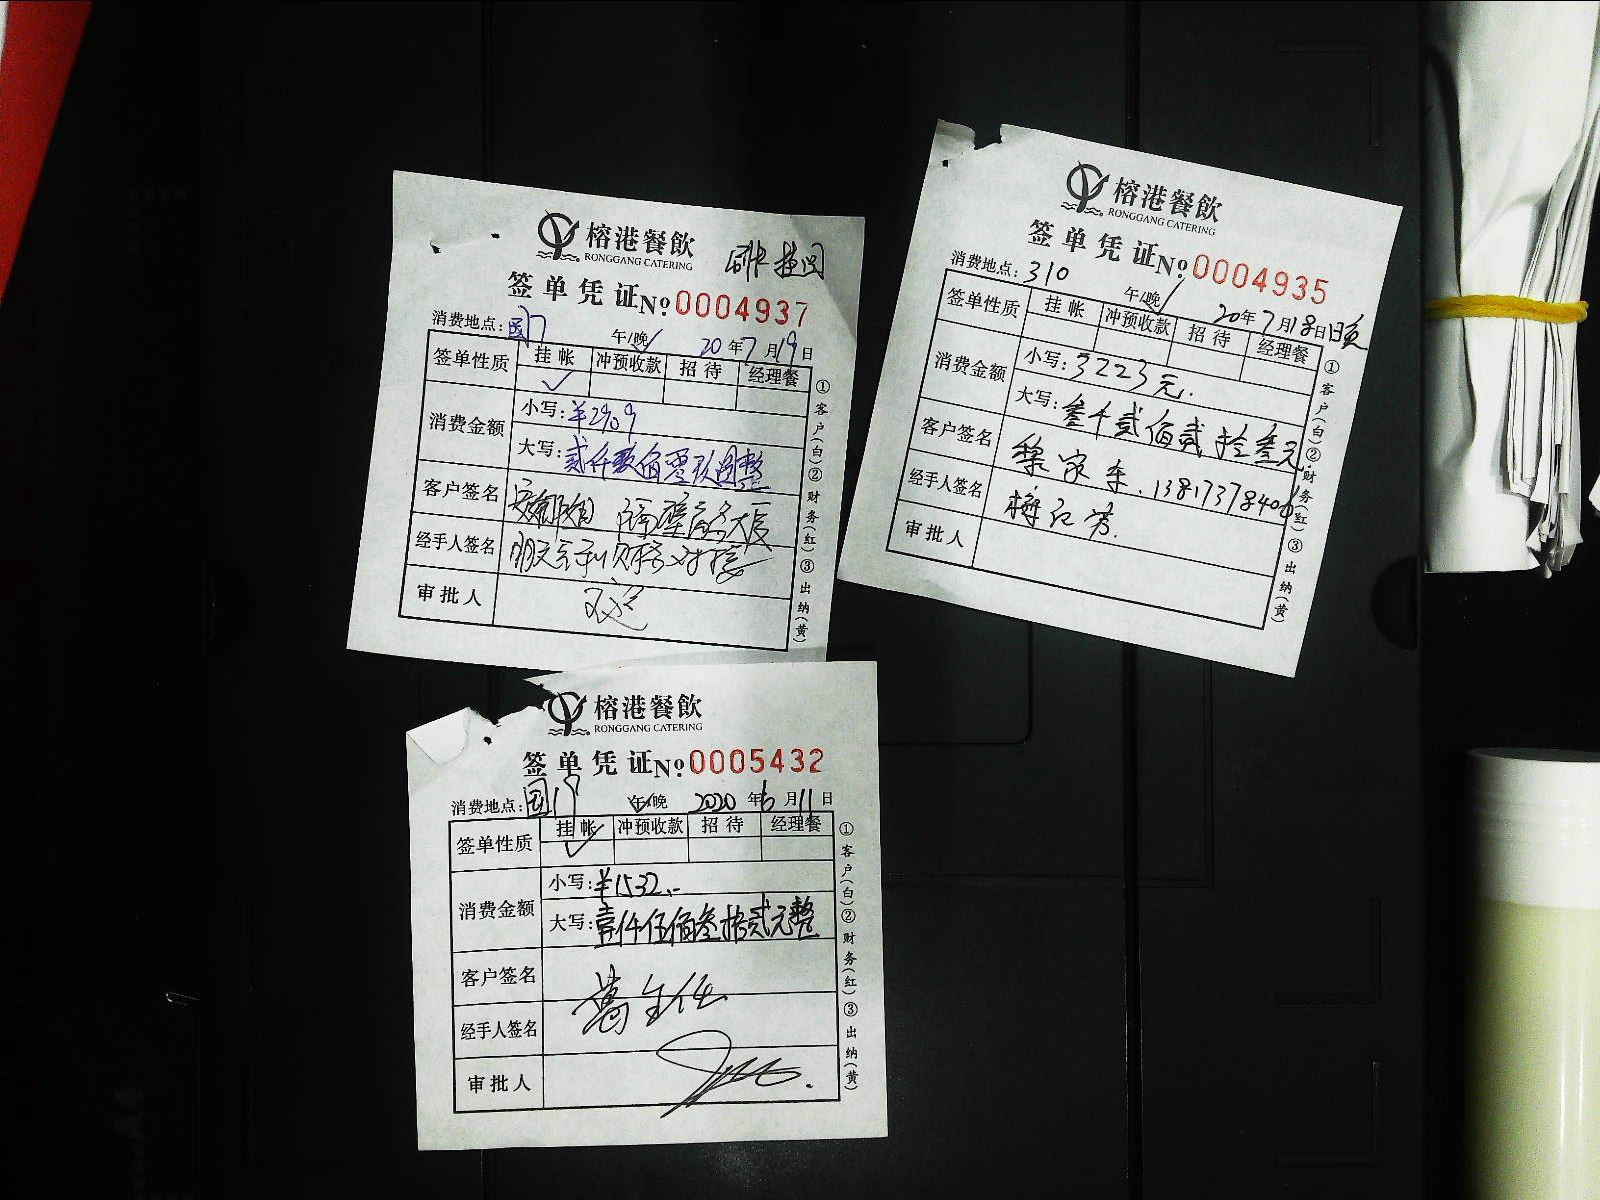 榕港餐飲
RONGGANG CATERING
签单凭证 No. 0004937
消费地点: 午/晚 20年7月19日
签单性质 挂帐 冲预收款 招待 经理餐
✓
消费金额 小写: ¥2909
大写: 贰仟玖佰零玖圆整
客户签名
经手人签名
审批人
①客户(白)②财务(红)③出纳(黄)
榕港餐飲
RONGGANG CATERING
签单凭证 No. 0004935
消费地点: 310 午/晚 20年7月18日
签单性质 挂帐 冲预收款 招待 经理餐
消费金额 小写: 3223元.
大写: 叁千贰佰贰拾叁元
客户签名
经手人签名 梅红芳.
审批人
①客户(白)②财务(红)③出纳(黄)
榕港餐飲
RONGGANG CATERING
签单凭证 No. 0005432
消费地点: 午/晚 2020年6月11日
签单性质 挂帐 冲预收款 招待 经理餐
✓
消费金额 小写: ¥1532.-
大写: 壹仟伍佰叁拾贰元整
客户签名 葛主任
经手人签名
审批人
①客户(白)②财务(红)③出纳(黄)